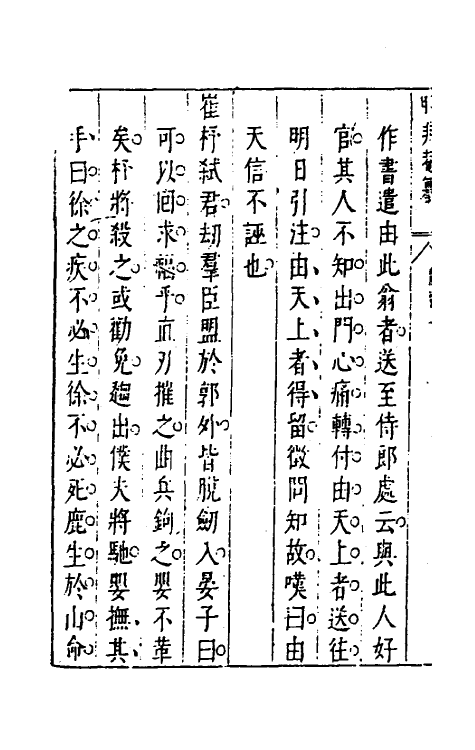 作書遣由此翁者送至侍郎處云與此人好
官其人不知出門心痛轉付由天上者送往
明日引注由天上者得留微問知故嘆曰由
天信不誣也
崔杼弑君刧羣臣盟於郭外皆脫劒入晏子曰
可以囘求福乎直刃摧之曲兵鉤之嬰不革
矣杼將殺之或勸免趨出僕夫將馳嬰撫其
手曰徐之疾不必生徐不必死鹿生於山命